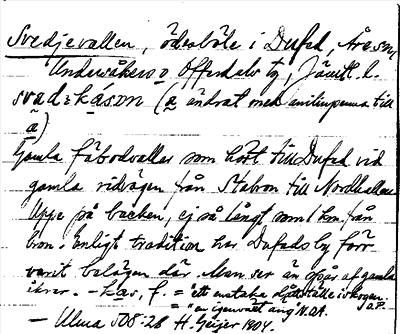 Svedjevallen, ödesböle i Dufed, Åre sn,
Undersåkers o Offerdals tg, Jämtl. l.
(a ändrat med anilinpenna till
a)
Gamla fäbodvallar som hört till Dufed vid
gamla ridvägen från Stabon till Nordhallen
Uppe på backen, ej så långt som 1 km från
bon. Enligt tradition har Dufeds by förr
varit belägen där. Man ser än spår af gamla
åkrar. f. = ett enstaka
= 
— Ulma 508:28 H. Geijer 1904.